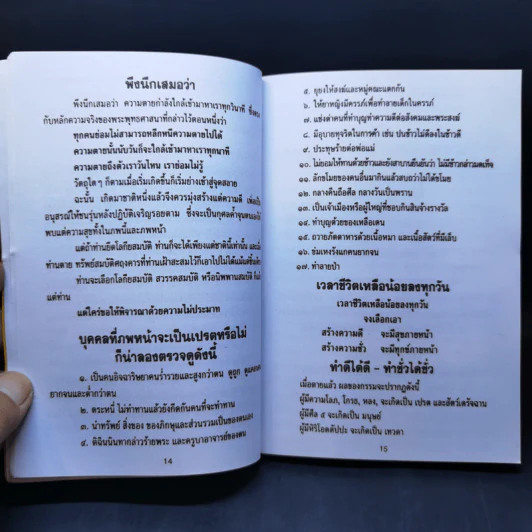 พึงนึกเสมอว่า
พึงนึกเสมอว่า ความตายกำลังใกล้เข้ามาหาเราทุกวินาที ซึ่งตรง
กับหลักความจริงของพระพุทธศาสนาที่กล่าวไว้ตอนหนึ่งว่า
ทุกคนย่อมไม่สามารถหลีกหนีความตายไปได้
ความตายนั้นนับวันก็จะใกล้เข้ามาหาเราทุกนาที
ความตายจะถึงตัวเราวันไหน เราย่อมไม่รู้
วัตถุใดๆ ก็ตามเมื่อเริ่มเกิดขึ้นก็เริ่มย่างเข้าสู่จุดสลาย
ฉะนั้น เกิดมาชาติหนึ่งแล้วจึงควรมุ่งสร้างแต่ความดี
อนุสรณ์ให้ชนรุ่นหลังปฏิบัติเจริญรอยตาม ซึ่งจะเป็นกุศลค้ำจุนตนเองให้
พบแต่ความสุขทั้งในภพนี้และภพหน้า
แต่ถ้าท่านยึดโลกียสมบัติ ท่านก็จะได้เพียงแต่ชาตินี้เท่านั้น
ท่านตาย ทรัพย์สมบัติศฤงคารที่ท่านเฝ้าสะสมไว้ก็เอาไปไม่ได้แม้แต่ชิ้นเดียว
ท่านจะเลือกโลกียสมบัติ สวรรคสมบัติ หรือนิพพานสมบัติ
แต่ท่าน
แต่ใคร่ขอให้พิจารณาด้วยความไม่ประมาท
บุคคลที่ภพหน้าจะเป็นเปรตหรือไม่
ก็น่าลองตรวจดูดังนี้
๑. เป็นคนอิจฉาริษยาคนร่ำรวยและสูงกว่าตน ดูถูก
ยากจนและต่ำกว่าตน
๒. ตระหนี่ ไม่ทำทานแล้วยังกีดกันคนที่จะทำทาน
๓. นำทรัพย์ สิ่งของ ของภิกษุและส่วนรวมเป็นของตนเอง
๔. ติฉินนินทากล่าวร้ายพระ และครูบาอาจารย์ของตน
14
๕. ยุยงให้สงฆ์และหมู่คณะแตกกัน
๖. ให้ยาหญิงมีครรภ์เพื่อทำลายเด็กในครรภ์
๗. แช่งด่าคนที่ทำบุญทำความดีต่อสังคมและพระสงฆ์
๘. มีอุบายทุจริตในการค้า เช่น ปนข้าวไม่ดีลงในข้าวดี
๙. ประทุษร้ายต่อพ่อแม่
๑๐. ไม่ยอมให้ทานด้วยข้าวและยังสาบานยืนยันว่า ไม่มีข้าวกล่าวตอแหล
๑๑. ลักขโมยของคนอื่นมากินแล้วสบถว่าไม่ได้ขโมย
๑๒. กลางคืนถือศีล กลางวันเป็นพราน
๑๓. เป็นเจ้าเมืองหรือผู้ใหญ่ที่ชอบกินสินจ้างรางวัล
๑๔. ทำบุญด้วยของเหลือเดน
๑๕. ถวายภัตตาหารด้วยเนื้อหมา และเนื้อสัตว์ที่มีเล็บ
๑๖. ข่มเหงรังแกคนยากจน
๑๗. ทำลายป่า
เวลาชีวิตเหลือน้อยลงทุกวัน
เวลาชีวิตเหลือน้อยลงทุกวัน
จงเลือกเอา
สร้างความดี จะมีสุขภายหน้า
สร้างความชั่ว จะมีทุกข์ภายหน้า
ทำดีได้ดี - ทำชั่วได้ชั่ว
เมื่อตายแล้ว ผลของกรรมจะปรากฏดังนี้
ผู้มีความโลภ, โกรธ, หลง, จะเกิดเป็น เปรต และสัตว์เดรัจฉาน
ผู้มีศีล ๕ จะเกิดเป็น มนุษย์
ผู้มีหิริโอตตัปปะ จะเกิดเป็น เทวดา
15